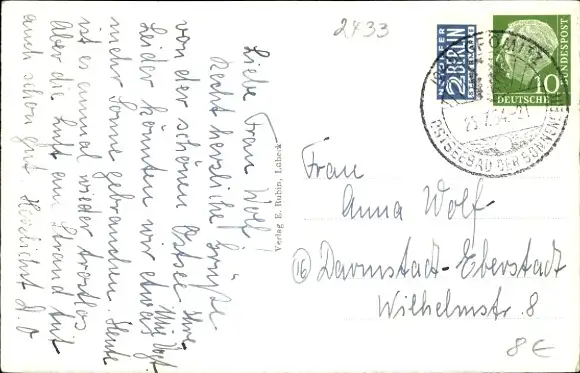 2433
Liebe Frau Wolf!
Recht herzliche Grüße
von der schönen Ostsee Ihre
Leider könnten wir etwas
mehr Sonne gebrauchen. Heute
ist es einmal wieder trostlos
Aber die Luft am Strand tut
auch schon gut. Herzlichst D. O
Vogt.
Verlag E. Rubin, Lübeck
NOTOPFER
2 BERLIN
STEUERMARKE
DEUTSCHE
BUNDESPOST
10
OSTSEEBAD DER SONNEN
Frau
Anna Wolf
(16) Darmstadt-Eberstadt
Wilhelmstr. 8
8€